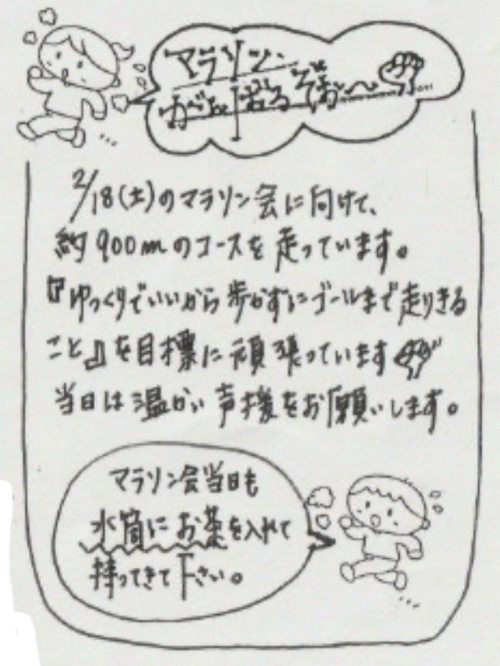 マラソン
がんばるぞぉ〜
2/18(土)のマラソン会に向けて、
約900mのコースを走っています。
『ゆっくりでいいから歩かずにゴールまで走りきる
こと』を目標に頑張っています
当日は温かい声援をお願いします。
マラソン会当日も
水筒にお茶を入れて
持ってきて下さい。